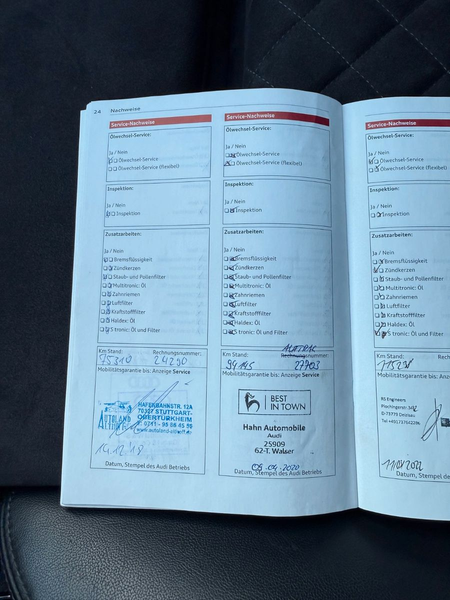 24 Nachweise
Service-Nachweise
Ölwechsel-Service:
Ja / Nein
Ölwechsel-Service
Ölwechsel-Service (flexibel)
Inspektion:
Ja / Nein
Inspektion
Zusatzarbeiten:
Ja / Nein
Bremsflüssigkeit
Zündkerzen
Staub- und Pollenfilter
Multitronic: Öl
Zahnriemen
Luftfilter
Kraftstofffilter
Haldex: Öl
S tronic: Öl und Filter
Km Stand: Rechnungsnummer:
24250
Mobilitätsgarantie bis: Anzeige Service
AUTOLAND
HAFENBAHNSTR. 12A
70327 STUTTGART-
OBERTÜRKHEIM
Datum, Stempel des Audi Betriebs
Service-Nachweise
Ölwechsel-Service:
Ja / Nein
Ölwechsel-Service
Ölwechsel-Service (flexibel)
Inspektion:
Ja / Nein
Inspektion
Zusatzarbeiten:
Ja / Nein
Bremsflüssigkeit
Zündkerzen
Staub- und Pollenfilter
Multitronic: Öl
Zahnriemen
Luftfilter
Kraftstofffilter
Haldex: Öl
S tronic: Öl und Filter
Km Stand: Rechnungsnummer:
27703
Mobilitätsgarantie bis: Anzeige Service
BEST
IN TOWN
Hahn Automobile
Audi
25909
62-T. Walser
08.04.2020
Datum, Stempel des Audi Betriebs
Service-Nachweise
Ölwechsel-Service:
Ja / Nein
Ölwechsel-Service
Ölwechsel-Service (flexibel)
Inspektion:
Ja / Nein
Inspektion
Zusatzarbeiten:
Ja / Nein
Bremsflüssigkeit
Zündkerzen
Staub- und Pollenfilter
Multitronic: Öl
Zahnriemen
Luftfilter
Kraftstofffilter
Haldex: Öl
S tronic: Öl und Filter
Km Stand:
Mobilitätsgarantie bis: Anz
RS Engineers
Datum, Stempel des Audi